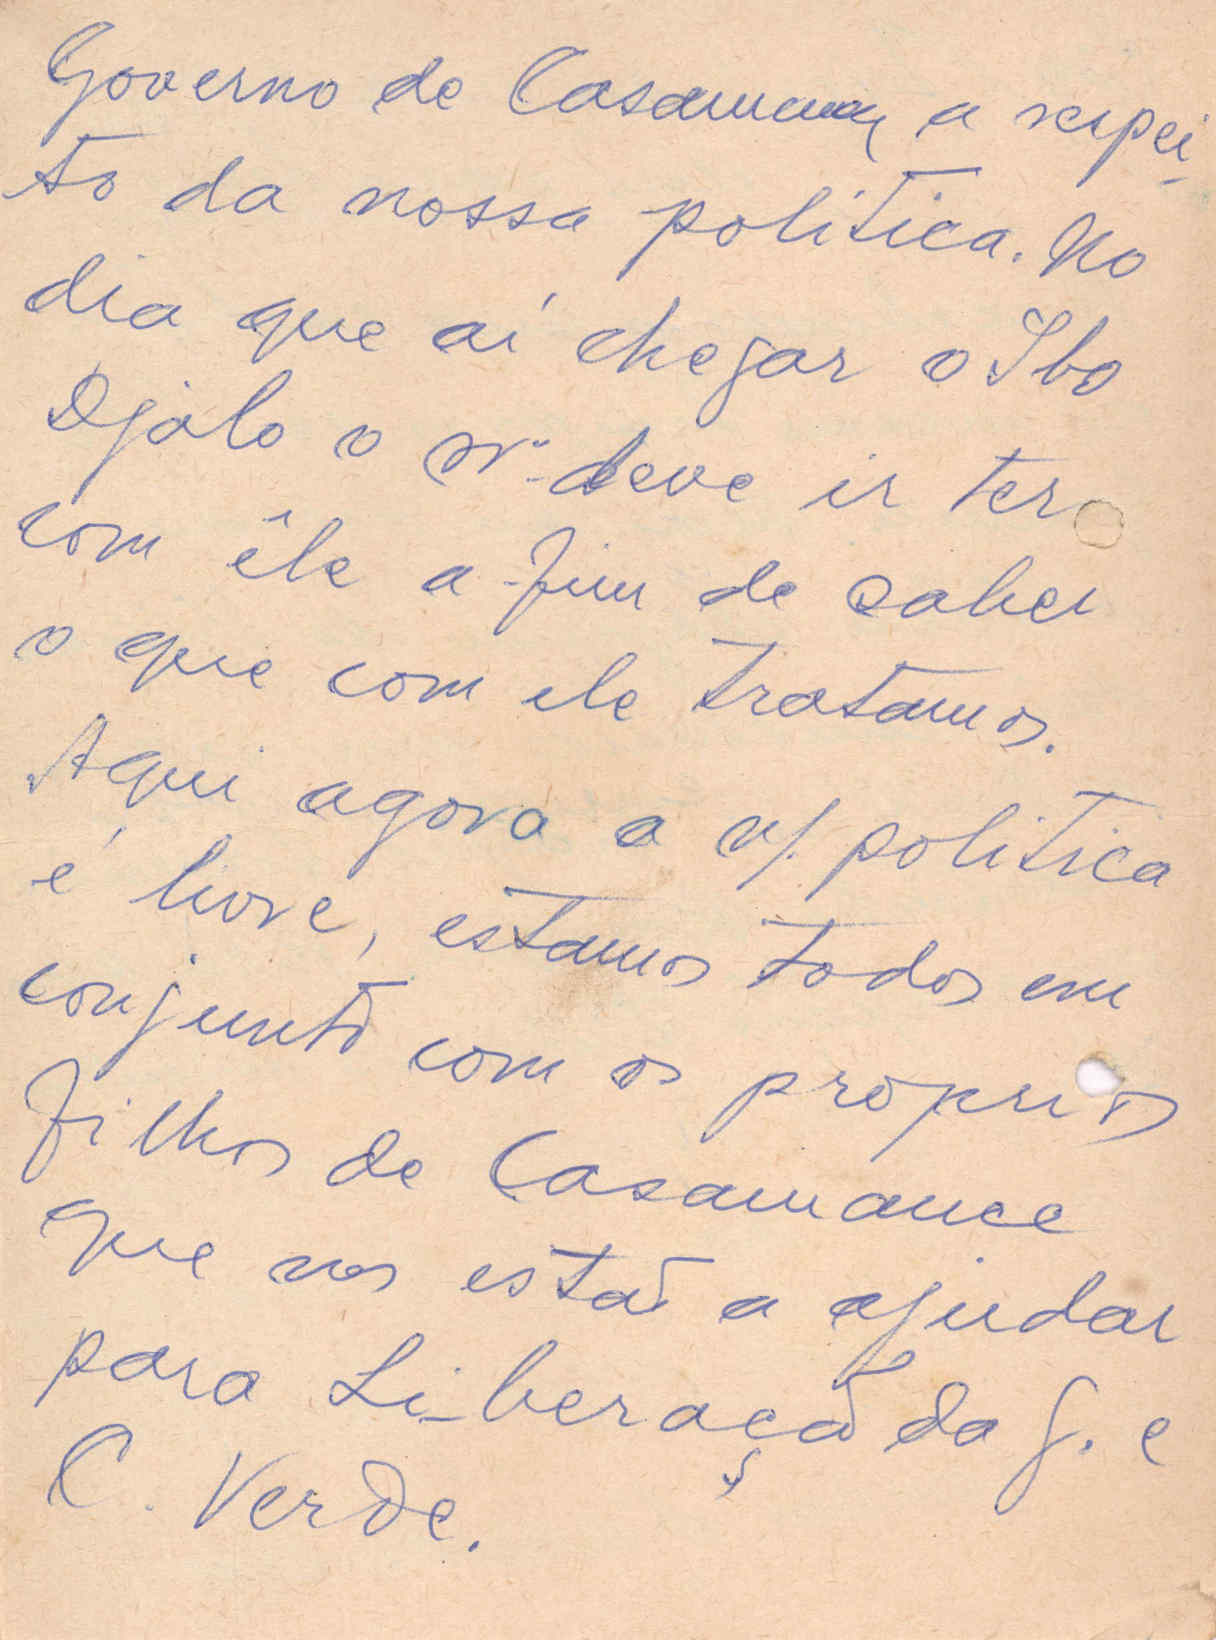 Governo de Casamance, a respei-
to da nossa politica. No
dia que aí chegar o Ibo
Djalo o deve ir ter
com êle a fim de saber
o que com ele tratamos.
Aqui agora a n/. politica
é livre, estamos todos em
conjunto com os proprios
filhos de Casamance
que nos estão a ajudar
para Liberação da G. e
C. Verde.